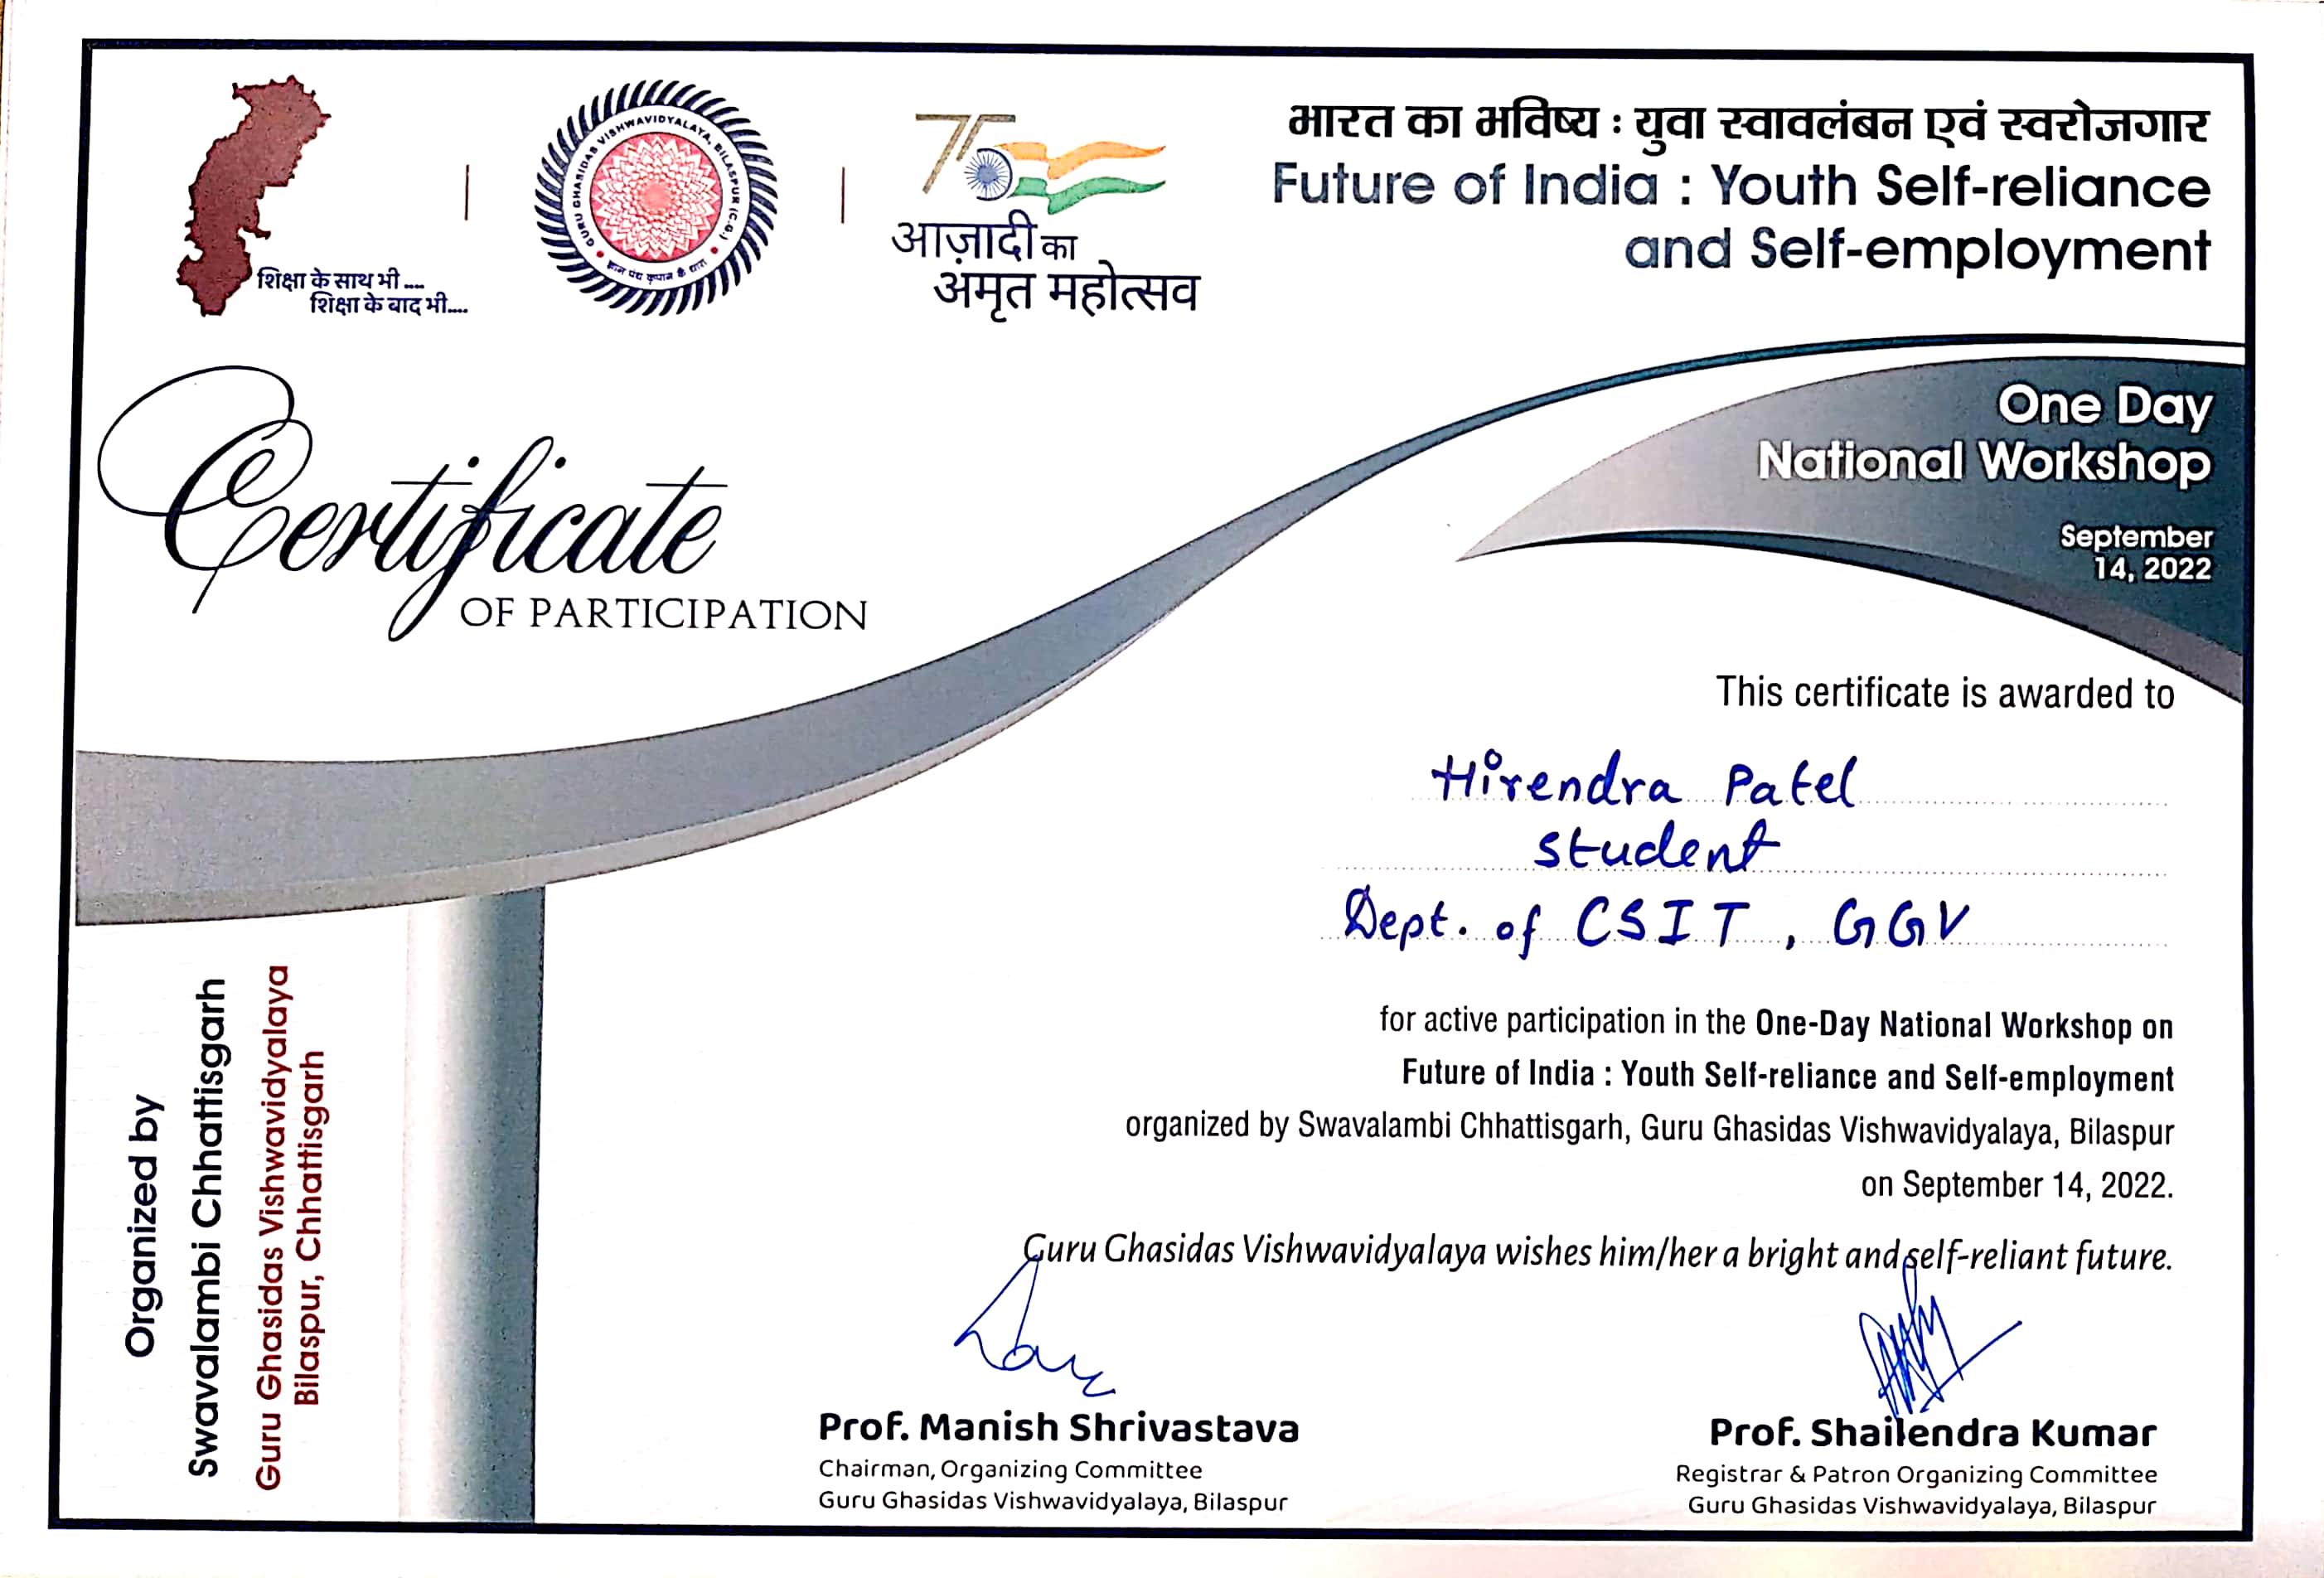 शिक्षा के साथ भी ....
शिक्षा के बाद भी....
GURU GHASIDAS VISHWAVIDYALAYA, BILASPUR (C.G.)
75
आज़ादी का
अमृत महोत्सव
भारत का भविष्य : युवा स्वावलंबन एवं स्वरोजगार
Future of India : Youth Self-reliance
and Self-employment
One Day
National Workshop
September
14, 2022
Certificate
OF PARTICIPATION
This certificate is awarded to
Hirendra Patel
Student
Dept. of CSIT, GGV
for active participation in the One-Day National Workshop on
Future of India : Youth Self-reliance and Self-employment
organized by Swavalambi Chhattisgarh, Guru Ghasidas Vishwavidyalaya, Bilaspur
on September 14, 2022.
Guru Ghasidas Vishwavidyalaya wishes him/her a bright and self-reliant future.
Organized by
Swavalambi Chhattisgarh
Guru Ghasidas Vishwavidyalaya
Bilaspur, Chhattisgarh
Prof. Manish Shrivastava
Chairman, Organizing Committee
Guru Ghasidas Vishwavidyalaya, Bilaspur
Prof. Shailendra Kumar
Registrar & Patron Organizing Committee
Guru Ghasidas Vishwavidyalaya, Bilaspur